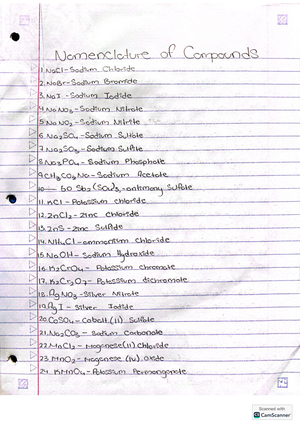 Nomenclature of Compounds
1. NaCl - Sodium Chloride
2. NaBr - Sodium Bromide
3. NaI - Sodium Iodide
4. NaNO3 - Sodium Nitrate
5. NaNO2 - Sodium Nitrite
6. Na2SO4 - Sodium Sulfate
7. Na2SO3 - Sodium Sulfite
8. Na3PO4 - Sodium Phosphate
9. CH3CO2Na - Sodium Acetate
10. Sb2(SO4)3 - antimony Sulfate
11. KCl - Potassium chloride
12. ZnCl2 - zinc chloride
13. ZnS - zinc Sulfide
14. NH4Cl - ammonium chloride
15. NaOH - Sodium Hydroxide
16. K2CrO4 - Potassium chromate
17. K2Cr2O7 - Potassium dichromate
18. AgNO3 - Silver Nitrate
19. AgI - Silver Iodide
20. CoSO4 - Cobalt (II) Sulfate
21. Na2CO3 - Sodium Carbonate
22. MnCl2 - Maganese (II) Chloride
23. MnO2 - Maganese (IV) oxide
24. KMnO4 - Potassium Permanganate
Scanned with
CamScanner